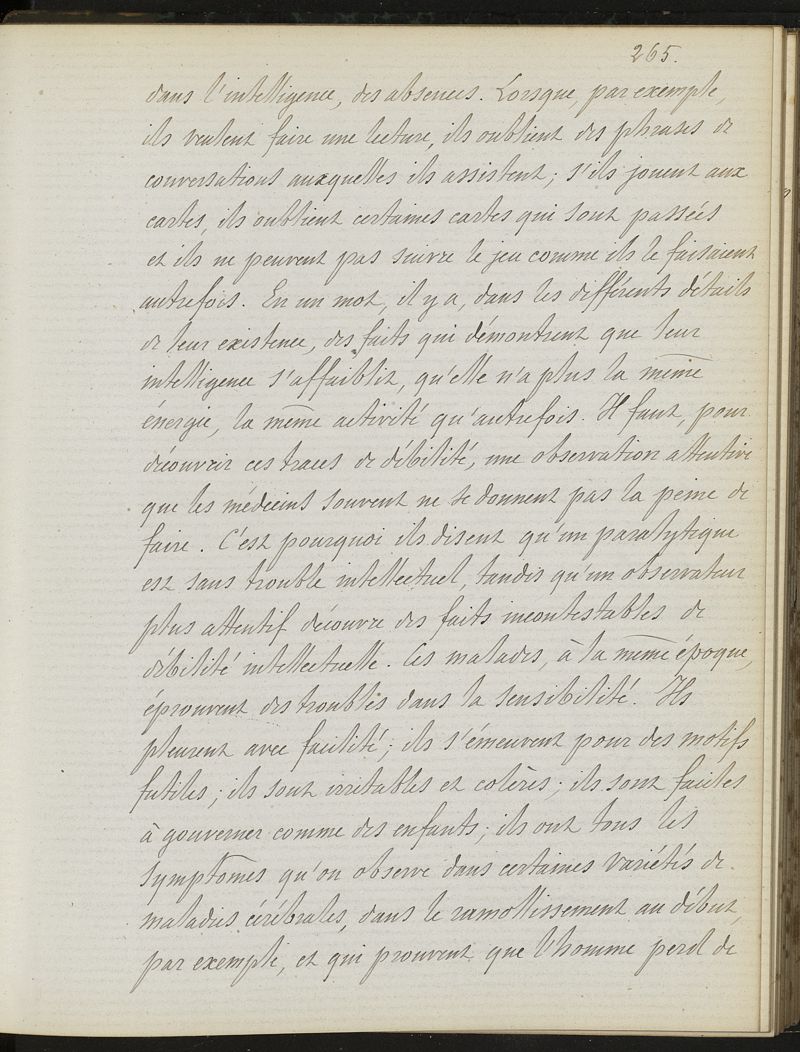 265.
dans l'intelligence, des absences. Lorsque, par exemple,
ils veulent faire une lecture, ils oublient des phrases de
conversations auxquelles ils assistent; s'ils jouent aux
cartes, ils oublient certaines cartes qui sont passées
et ils ne peuvent pas suivre le jeu comme ils le faisaient
autrefois. En un mot, il y a, dans les différents détails
de leur existence, des faits qui démontrent que leur
intelligence s'affaiblit, qu'elle n'a plus la même
énergie, la même activité qu'autrefois. Il faut, pour
découvrir ces traces de débilité, une observation attentive
que les médecins souvent ne se donnent pas la peine de
faire. C'est pourquoi ils disent qu'un paralytique
est sans trouble intellectuel, tandis qu'un observateur
plus attentif découvre des faits incontestables de
débilité intellectuelle. Ces malades, à la même époque,
éprouvent des troubles dans la sensibilité. Ils
pleurent avec facilité; ils s'émeuvent pour des motifs
futiles; ils sont irritables et colères; ils sont faciles
à gouverner comme des enfants; ils ont tous les
symptômes qu'on observe dans certaines variétés de
maladies cérébrales, dans le ramollissement au début,
par exemple, et qui prouvent que l'homme perd de